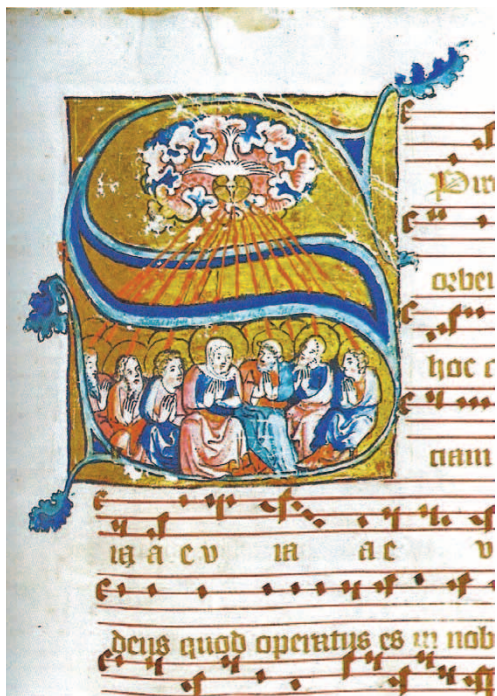 S
Pirı
orbeı
hoc c
ciam
ia a e v ia a e v
deus quod operatus es in nob